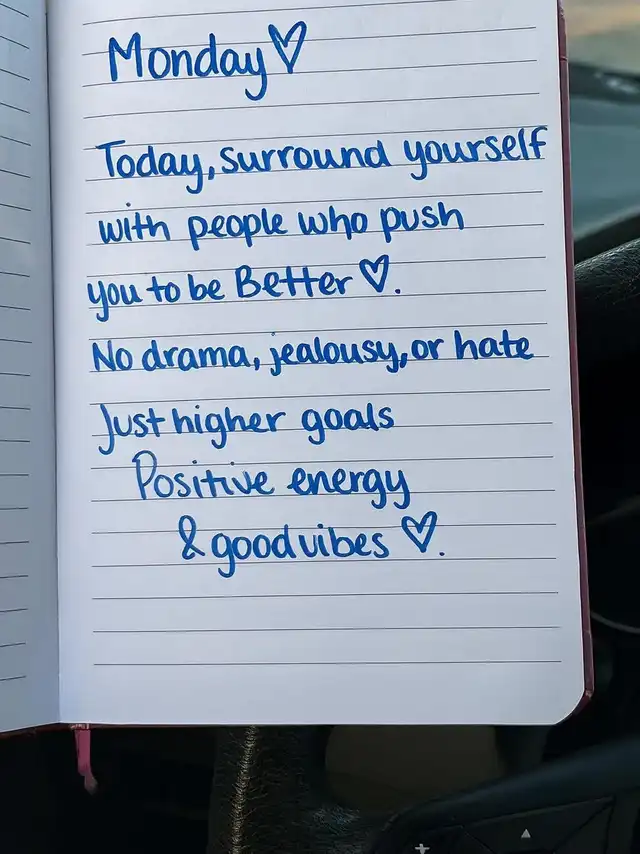 Monday♡
Today, surround yourself
with people who push
you to be Better ♡.
No drama, jealousy, or hate
Just higher goals
Positive energy
& good vibes ♡.